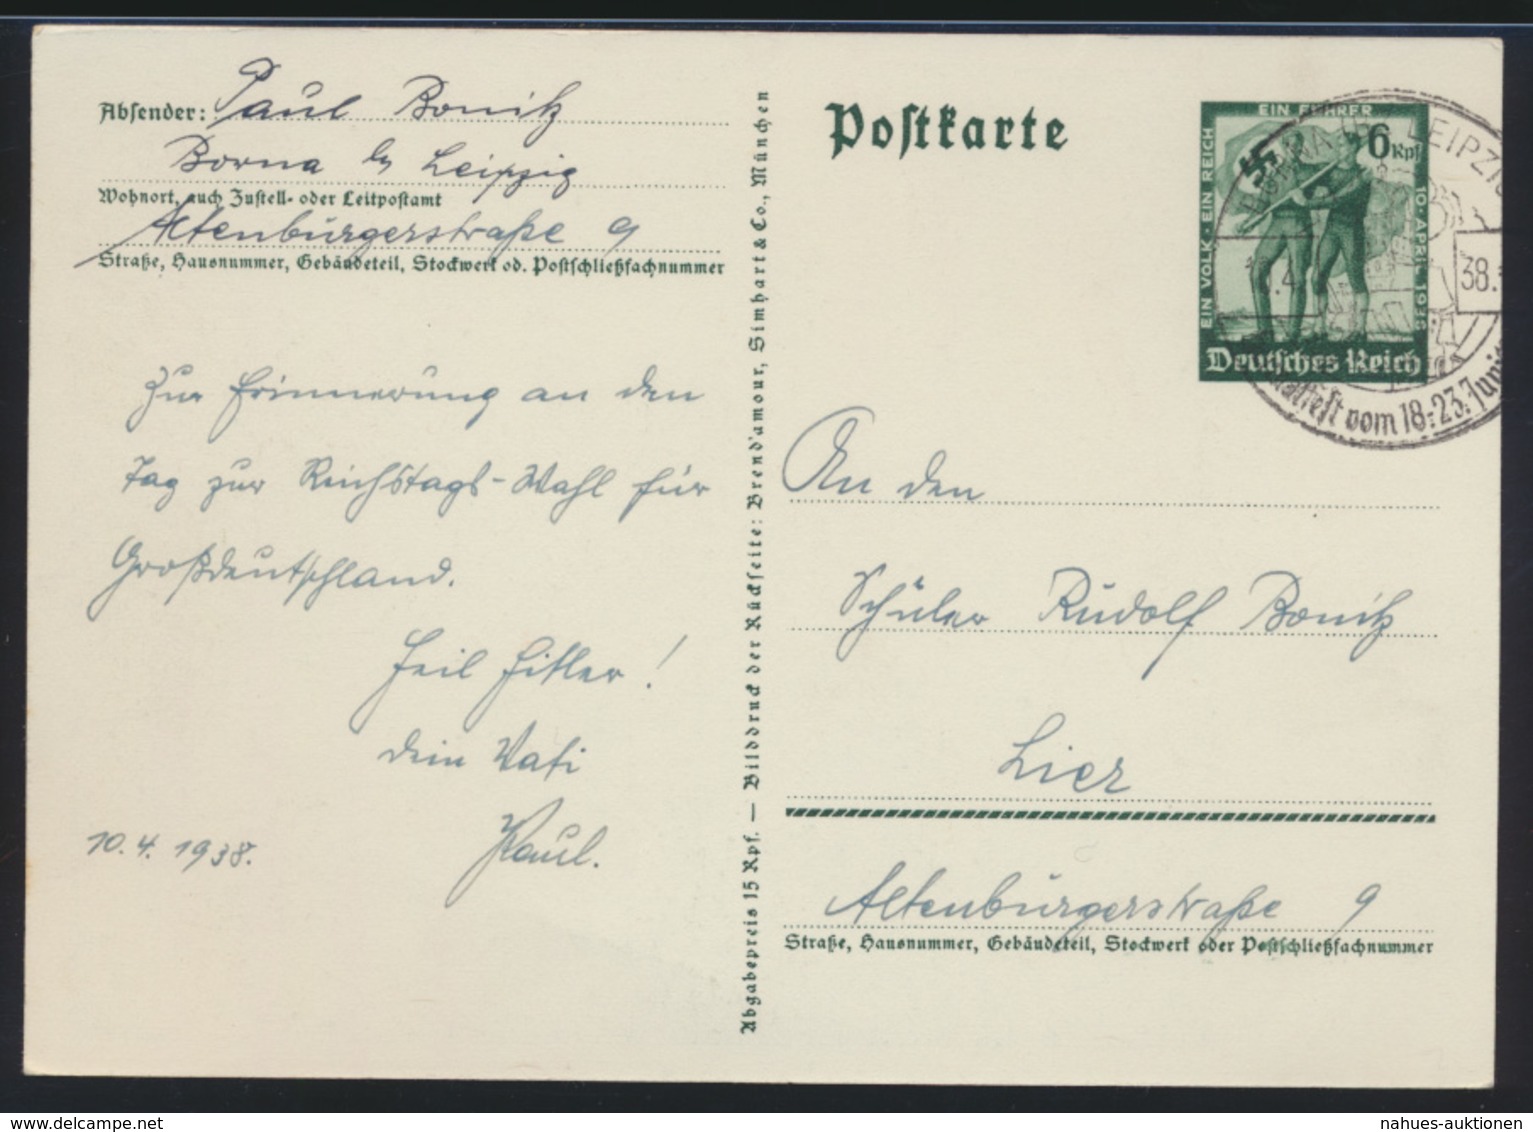 Absender: Paul Bonitz
Borna b/ Leipzig
Wohnort, auch Zustell- oder Leitpostamt
Altenburgerstraße 9
Straße, Hausnummer, Gebäudeteil, Stockwerk od. Postschließfachnummer
Zur Erinnerung an den
Tag zur Reichstags-Wahl für
Großdeutschland.
Heil Hitler!
dein Vati
Paul.
10.4.1938.
Abgabepreis 15 Rpf. — Bilddruck der Rückseite: Brend'amour, Simhart & Co., München
Postkarte
EIN VOLK · EIN REICH
EIN FÜHRER
10. APRIL 1938
6 Rpf
Deutsches Reich
BORNA LEIPZIG
.4. 38.
vom 18.-23. Juni
An den
Schüler Rudolf Bonitz
Hier
Altenburgerstraße 9
Straße, Hausnummer, Gebäudeteil, Stockwerk oder Postschließfachnummer
www.delcampe.net
nahues-auktionen